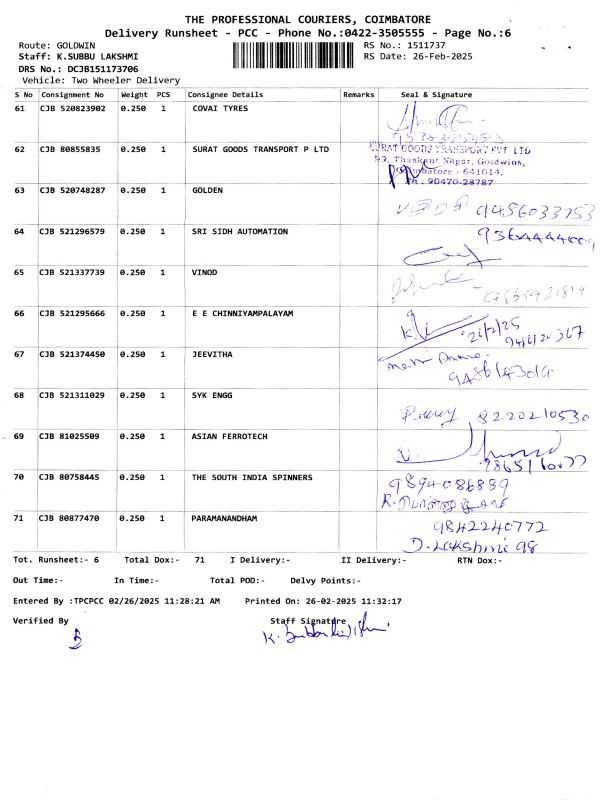 THE PROFESSIONAL COURIERS, COIMBATORE
Delivery Runsheet - PCC - Phone No.:0422-3505555 - Page No.:6
Route: GOLDWIN RS No.: 1511737
Staff: K.SUBBU LAKSHMI RS Date: 26-Feb-2025
DRS No.: DCJB151173706
Vehicle: Two Wheeler Delivery
S No Consignment No Weight PCS Consignee Details Remarks Seal & Signature
61 CJB 520823902 0.250 1 COVAI TYRES
62 CJB 80855835 0.250 1 SURAT GOODS TRANSPORT P LTD
SURAT GOODS TRANSPORT PVT LTD
Nagar, Goldwins,
Coimbatore - 641014.
Ph: 90470-28787
63 CJB 520748287 0.250 1 GOLDEN
9456033753
64 CJB 521296579 0.250 1 SRI SIDH AUTOMATION
65 CJB 521337739 0.250 1 VINOD
9865921819
66 CJB 521295666 0.250 1 E E CHINNIYAMPALAYAM
67 CJB 521374450 0.250 1 JEEVITHA
68 CJB 521311029 0.250 1 SYK ENGG
8220210530
69 CJB 81025509 0.250 1 ASIAN FERROTECH
70 CJB 80758445 0.250 1 THE SOUTH INDIA SPINNERS
9894086889
71 CJB 80877470 0.250 1 PARAMANANDHAM
9842240772
D. Lakshmi 98
Tot. Runsheet:- 6 Total Dox:- 71 I Delivery:- II Delivery:- RTN Dox:-
Out Time:- In Time:- Total POD:- Delvy Points:-
Entered By :TPCPCC 02/26/2025 11:28:21 AM Printed On: 26-02-2025 11:32:17
Verified By Staff Signatre